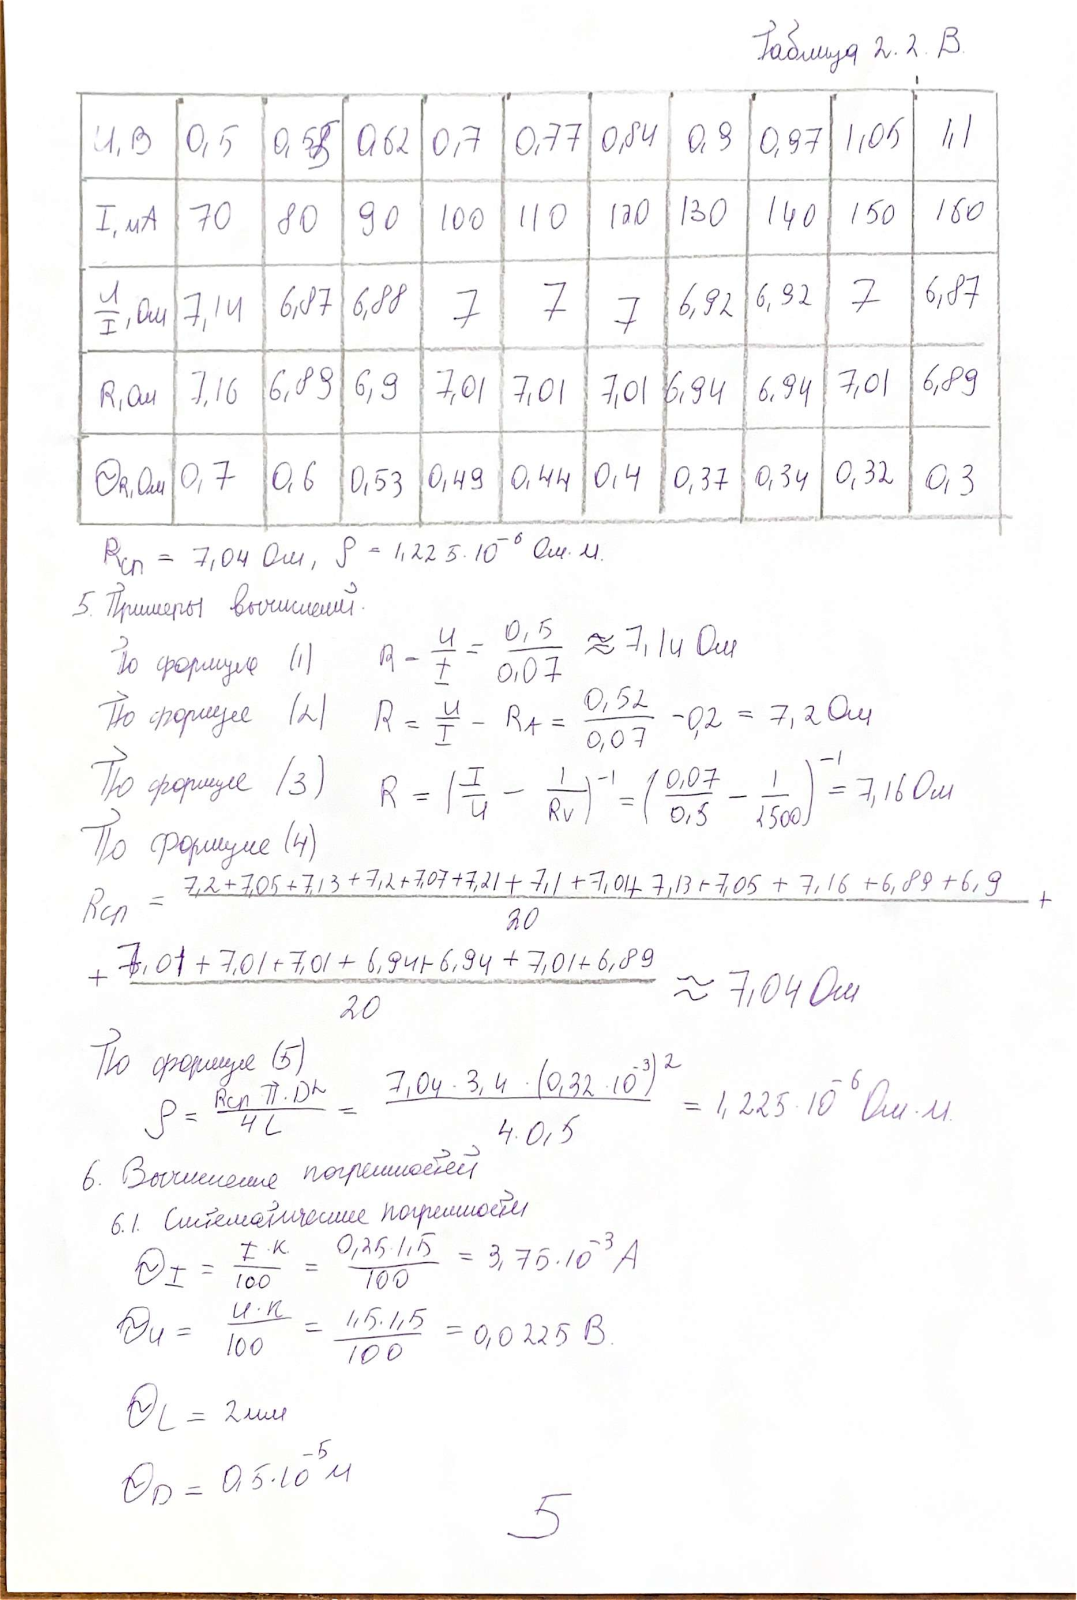 Таблица 2.2. В.
U, В 0,5 0,55 0,62 0,7 0,77 0,84 0,9 0,97 1,05 1,1
I, мА 70 80 90 100 110 120 130 140 150 160
U/I, Ом 7,14 6,87 6,88 7 7 7 6,92 6,92 7 6,87
R, Ом 7,16 6,89 6,9 7,01 7,01 7,01 6,94 6,94 7,01 6,89
Θ_R, Ом 0,7 0,6 0,53 0,49 0,44 0,4 0,37 0,34 0,32 0,3
Rсп = 7,04 Ом, ρ = 1,225·10⁻⁶ Ом·м.
5. Примеры вычислений.
По формуле (1) R - U/I = 0,5/0,07 ≈ 7,14 Ом
По формуле (2) R = U/I - R_A = 0,52/0,07 - 0,2 = 7,2 Ом
По формуле (3) R = (I/U - 1/Rv)⁻¹ = (0,07/0,5 - 1/2500)⁻¹ = 7,16 Ом
По формуле (4)
Rсп = (7,2+7,05+7,13+7,2+7,07+7,21+7,1+7,01+7,13+7,05+7,16+6,89+6,9)/20 +
+ (7,01+7,01+7,01+6,94+6,94+7,01+6,89)/20 ≈ 7,04 Ом
По формуле (5)
ρ = Rсп П·D²/4L = 7,04·3,4·(0,32·10⁻³)²/4·0,5 = 1,225·10⁻⁶ Ом·м.
6. Вычисление погрешностей
6.1. Систематические погрешности
Θ_I = I·K/100 = 0,25·1,5/100 = 3,75·10⁻³ А
Θ_U = U·K/100 = 1,5·1,5/100 = 0,0225 В.
Θ_L = 2мм
Θ_D = 0,5·10⁻⁵ м
5